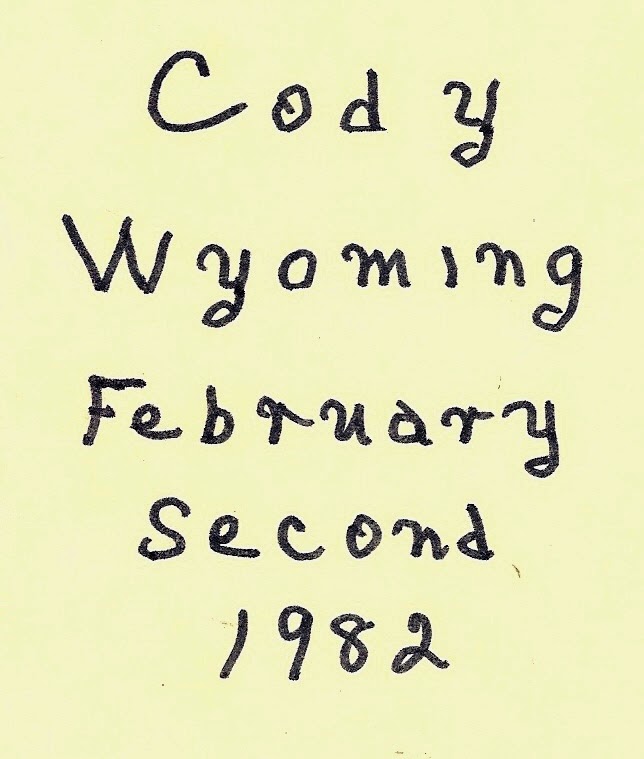 Cody
Wyoming
February
Second
1982